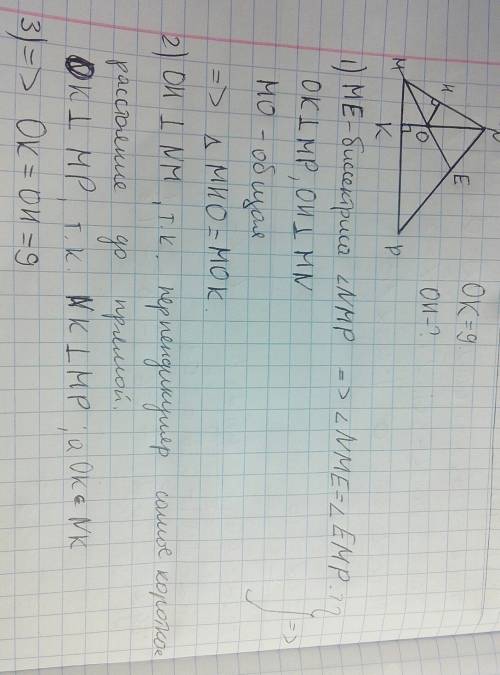 M
N
H
O
E
K
P
OK=9.
OH-?
1) ME-биссектриса ∠NMP => ∠NME=∠EMP.
OK⊥MP, OH⊥MN
MO-общая
=>
=> Δ MHO=MOK.
2) OH⊥NM, т.к. перпендикуляр самое короткое
расстояние до прямой.
OK⊥MP, т.к. NK⊥MP, а OK∈NK
3) => OK=OH=9